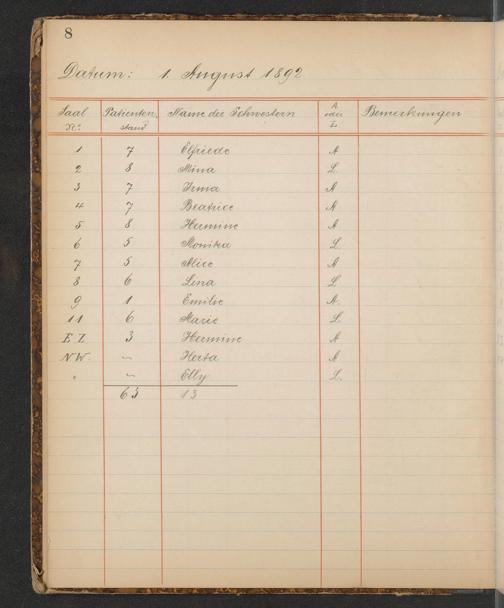 8
Datum: 1. August 1892
Saal Nr. Patienten, stand Name der Schwestern A. oder L. Bemerkungen
1 7 Elfriede A
2 8 Mina L.
3 7 Irma A
4 7 Beatrice A
5 8 Hermine A
6 5 Monika L.
7 5 Alice A
8 6 Lina L
9 1 Emilie A.
11 6 Marie L.
E Z 3 Hermine A
N W „ Herta A
„ „ Elly L.
63 13